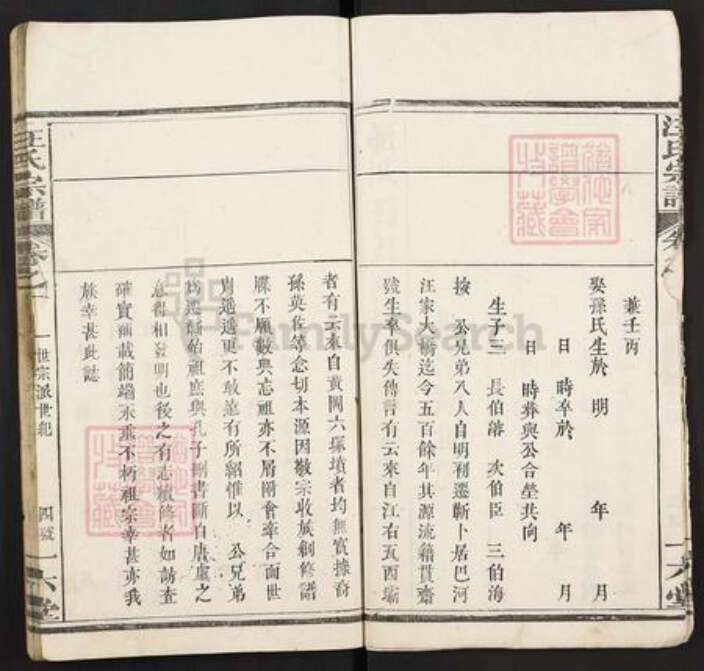 汪氏宗譜
兼壬丙
娶孫氏生於 明 年 月
日 時卒於 年 月
日 時葬與公合塋共向
生子三 長伯濤 次伯臣 三伯海
按 公兄弟八人自明初遷蘄卜居巴河
汪家大 迄今五百餘年其源流籍貫齋
號生卒俱失傳言有云來自江右瓦西壩
者有云來自黄岡六 墳者均無實據裔
孫英佐等念切本源因敬宗收族創修譜
牒不願數典忘祖亦不屑附會牽合而世
遠遙遙更不敢 有所 惟以 公兄弟
為遷蘄始祖庶與孔子刪書斷自唐虞之
意得相發明也後之有志續修者如訪查
確實補載簡端永垂不朽祖宗幸甚亦我
族幸甚此誌
汪氏宗譜
卷之一
一世宗派世紀
四號
一六堂
FamilySearch